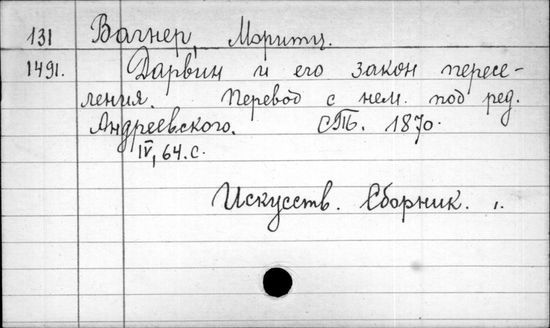 131 Вагнер, Мориц.
1491. Дарвин и его закон пересе-
ления. Перевод с нем. под ред.
Андреевского. СПБ. 1870.
IV, 64. с.
Искусств. Сборник.